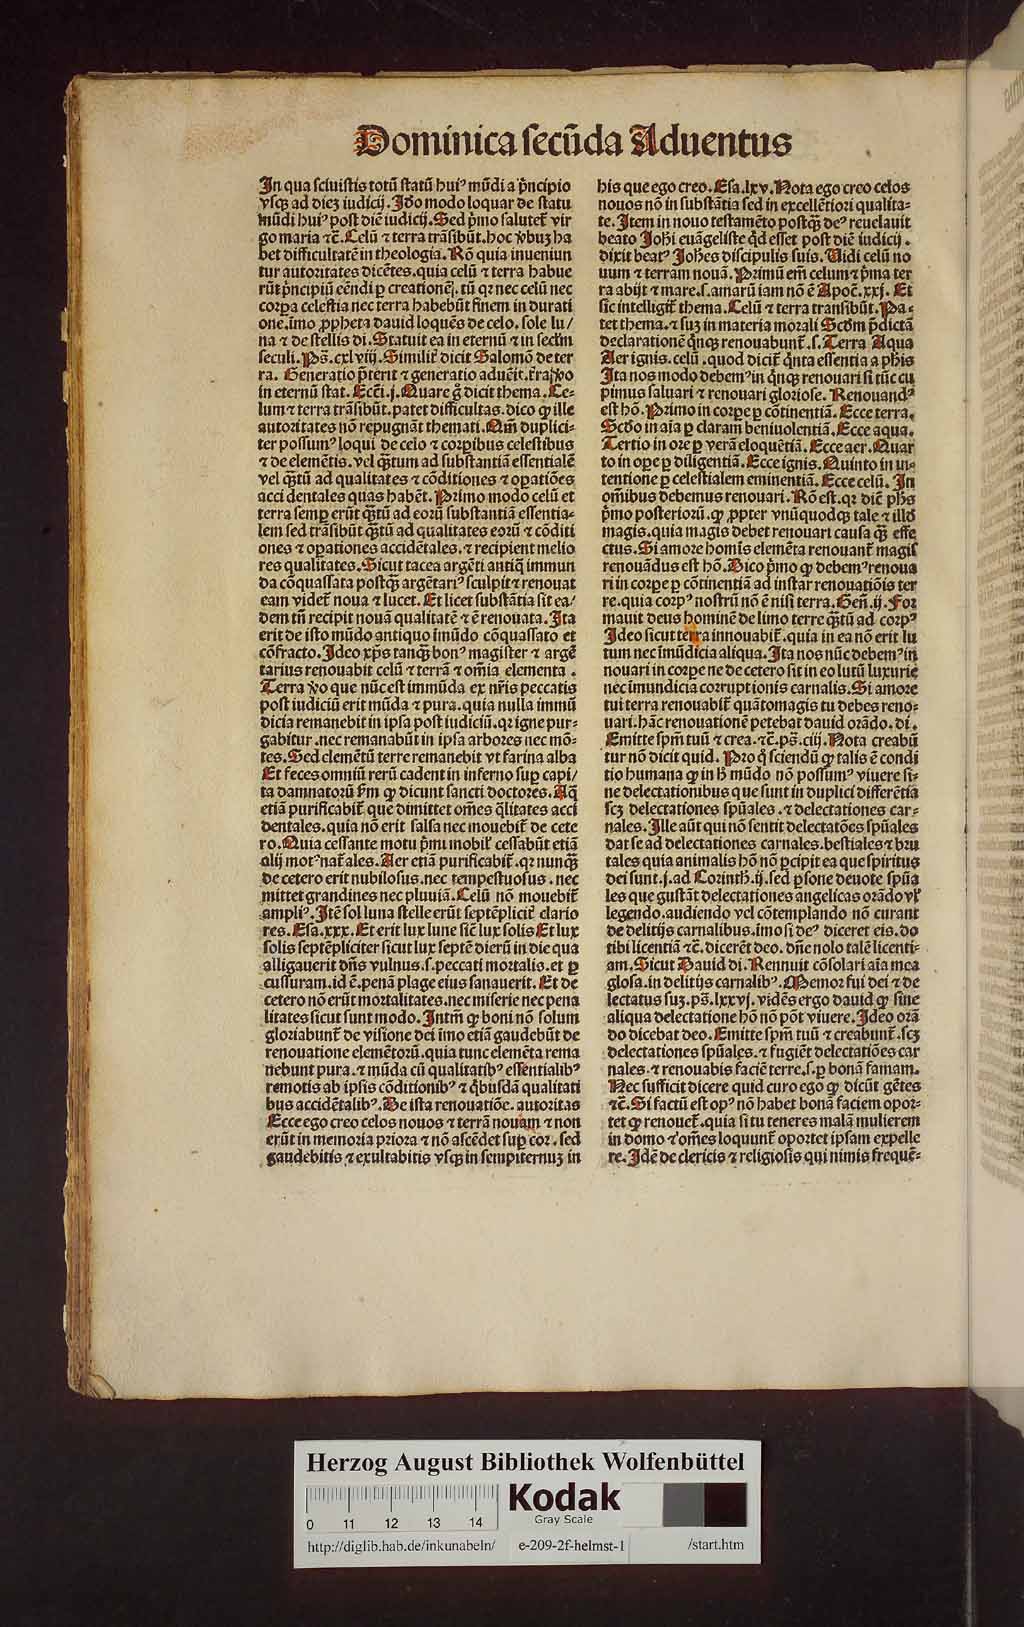 Dominica secūda Aduentus
In qua sciuistis totū statū huiꝰ mūdi a pͥncipio
vsqꝫ ad dieꝫ iudicij. Iō modo loquar de statu
mūdi huiꝰ post diē iudicij. Sed pͥmo salutet̄ vir
go maria ⁊c̄. Celū ⁊ terra trāsibūt. hoc v̓buꝫ ha
bet difficultatē in theologia. Rō quia inueniun
tur autoritates dicētes. quia celū ⁊ terra habue
rūt pͥncipiū eēndi ꝑ creationeꝫ. tū qꝛ nec celū nec
corꝑa celestia nec terra habebūt finem in durati
one. imo ꝓpheta dauid loquēs de celo. sole lu/
na ⁊ de stellis di. Statuit ea in eternū ⁊ in seclm̄
seculi. Ps̄. cxlviij. Similit̓ dicit Salomō de ter
ra. Generatio p̄terit ⁊ generatio aduēit. t̓ra v̓o
in eternū stat. Ecc̄i. j. Quare gͦ dicit thema. Ce-
lum ⁊ terra trāsibūt. patet difficultas. dico ꝙ ille
autoritates nō repugnāt themati. Qm̄ duplici-
ter possumꝰ loqui de celo ⁊ corꝑibus celestibus
⁊ de elemētis. vel qͣꝫtum ad substantiā essentialē
vel qͣꝫtū ad qualitates ⁊ cōditiones ⁊ oꝑatiōes
accidentales quas habēt. Primo modo celū et
terra semꝑ erūt qͣꝫtū ad eorū substantiā essentia-
lem sed trāsibūt qͣꝫtū ad qualitates eorū ⁊ cōditi
ones ⁊ oꝑationes accidētales. ⁊ recipient melio
res qualitates. Sicut tacea argēti antiqͥ immun
da cōquassata postqͣꝫ argētariꝰ sculpit ⁊ renouat
eam videt̄ noua ⁊ lucet. Et licet substātia sit ea/
dem tn̄ recipit nouā qualitatē ⁊ ē renouata. Ita
erit de isto mūdo antiquo īmūdo cōquassato et
cōfracto. Ideo xp̄s tanqͣꝫ bonꝰ magister ⁊ argē
tarius renouabit celū ⁊ terrā ⁊ om̄ia elementa.
Terra v̓o que nūc est immūda ex nr̄is peccatis
post iudiciū erit mūda ⁊ pura. quia nulla immū
dicia remanebit in ipsa post iudiciū. qꝛ igne pur-
gabitur. nec remanabūt in ipsa arbores nec mō-
tes. Sed clemētū terre remanebit vt farina alba
Et feces omniū rerū cadent in inferno suꝑ capi/
ta damnatorū ẜm ꝙ dicunt sancti doctores. Aq̄
etiā purificabit̄ que dimittet om̄es qͣlitates acci
dentales. quia nō erit salsa nec mouebit̄ de cete
ro. Quia cessante motu pͥmi mobil̓ cessabūt etiā
alij motꝰ nat̓ales. Aer etiā purificabit̄. qꝛ nunqͣꝫ
de cetero erit nubilosus. nec tempestuosus. nec
mittet grandines nec pluuiā. Celū nō mouebit̄
ampliꝰ. Itē sol luna stelle erūt septēplicit̓ clario
res. Esa. xxx. Et erit lux lune sic̄ lux solis Et lux
solis septēpliciter sicut lux septē dierū in die qua
alligauerit dn̄s vulnus. s. peccati mortalis. et ꝑ
cussuram. id ē. penā plage eius sanauerit. Et de
cetero nō erūt mortalitates. nec miserie nec pena
litates sicut sunt modo. Intm̄ ꝙ boni nō solum
gloriabunt̄ de visione dei imo etiā gaudebūt de
renouatione elemētorū. quia tunc elemēta rema
nebunt pura. ⁊ mūda cū qualitatibꝰ essentialibꝰ
remotis ab ipsis cōditionibꝰ ⁊ qͥbusdā qualitati
bus accidētalibꝰ. De ista renouatiōe. autoritas
Ecce ego creo celos nouos ⁊ terrā nouam ⁊ non
erūt in memoria priora ⁊ nō ascēdet suꝑ cor. sed
gaudebitis ⁊ exultabitis vsqꝫ in sempiternuꝫ in
his que ego creo. Esa. lxv. Nota ego creo celos
nouos nō in substātia sed in excellētiori qualita-
te. Item in nouo testamēto postqͣꝫ deꝰ reuelauit
beato Joh̄i euāgeliste qͥd esset post diē iudicij.
dixit beatꝰ Joh̄es discipulis suis. Uidi celū no
uum ⁊ terram nouā. Primū em̄ celum ⁊ pͥma ter
ra abijt ⁊ mare. s. amarū iam nō ē Apoc̄. xxj. Et
sic intelligit̄ thema. Celū ⁊ terra transibūt. Pa-
tet thema. ⁊ suꝫ in materia morali Scd̓m p̄dictā
declarationē qͥnqꝫ renouabunt̄. s. Terra Aqua
Aer ignis. celū. quod dicit̄ qͥnta essentia a ph̄is
Ita nos modo debemꝰ in qͥnqꝫ renouari si tūc cu
pimus saluari ⁊ renouari gloriose. Renouandꝰ
est hō. Primo in corꝑe ꝑ cōtinentiā. Ecce terra.
Scd̓o in aīa ꝑ claram beniuolentiā. Ecce aqua.
Tertio in ore ꝑ verā eloquētiā. Ecce aer. Quar
to in oꝑe ꝑ diligentiā. Ecce ignis. Quinto in in-
tentione ꝑ celestialem eminentiā. Ecce celū. In
om̄ibus debemus renouari. Rō est. qꝛ diē ph̄s
pͥmo posteriorū. ꝙ ꝓpter vnūquodqꝫ tale ⁊ illd̓
magis. quia magis debet renouari causa qͣꝫ effe
ctus. Si amore homīs elemēta renouant̄ magis
renouādus est hō. Dico pͥmo ꝙ debemꝰ renoua
ri in corꝑe ꝑ cōtinentiā ad instar renouatiōis ter
re. quia corpꝰ nostrū nō ē nisi terra. Gen̄. ij. For
mauit deus hominē de limo terre qͣꝫtū ad corpꝰ
Ideo sicut terra innouabit̄. quia in ea nō erit lu
tum nec īmūdicia aliqua. Ita nos nūc debemꝰ in
nouari in corꝑe ne de cetero sit in eo lutū luxurie
nec īmundicia corruptionis carnalis. Si amore
tui terra renouabit̄ quātomagis tu debes reno-
uari. hāc renouationē petebat dauid orādo. di.
Emitte spm̄ tuū ⁊ crea. ⁊c̄. ps̄. ciij. Nota creabū
tur nō dicit quid. Pro qͦ sciendū ꝙ talis ē condi
tio humana ꝙ in hͦ mūdo nō possumꝰ viuere si-
ne delectationibus que sunt in duplici differētia
scꝫ delectationes spūales. ⁊ delectationes car-
nales. Ille aūt qui nō sentit delectatōes spūales
dat se ad delectationes carnales. bestiales ⁊ bru
tales quia animalis hō nō ꝑcipit ea que spiritus
dei sunt. j. ad Corinth. ij. sed ꝑsone deuote spūa
les que gustāt delectationes angelicas orādo vl̓
legendo. audiendo vel cōtemplando nō curant
de delitijs carnalibus. imo si deꝰ diceret eis. do
tibi licentiā ⁊c̄. dicerēt deo. dn̄e nolo talē licenti-
am. Sicut Dauid di. Rennuit cōsolari aīa mea
glosa. in delitijs carnalibꝰ. Memor fui dei ⁊ de
lectatus suꝫ. ps̄. lxxvj. vidēs ergo dauid ꝙ sine
aliqua delectatione hō nō pōt viuere. Ideo orā
do dicebat deo. Emitte spm̄ tuū ⁊ creabunt̄. scꝫ
delectationes spūales. ⁊ fugiēt delectatiōes car
nales. ⁊ renouabis faciē terre. s. ꝑ bonā famam.
Nec sufficit dicere quid curo ego ꝙ dicūt gētes
⁊c̄. Si factū est opꝰ nō habet bonā faciem opor-
tet ꝙ renouet̄. quia si tu teneres malā mulierem
in domo ⁊ om̄es loquunt̄ oportet ipsam expelle
re. Idē de clericis ⁊ religiosis qui nimis frequē-
Herzog August Bibliothek Wolfenbüttel
0 11 12 13 14
Kodak
Gray Scale
http://diglib.hab.de/inkunabeln/ e-209-2f-helmst-1 /start.htm